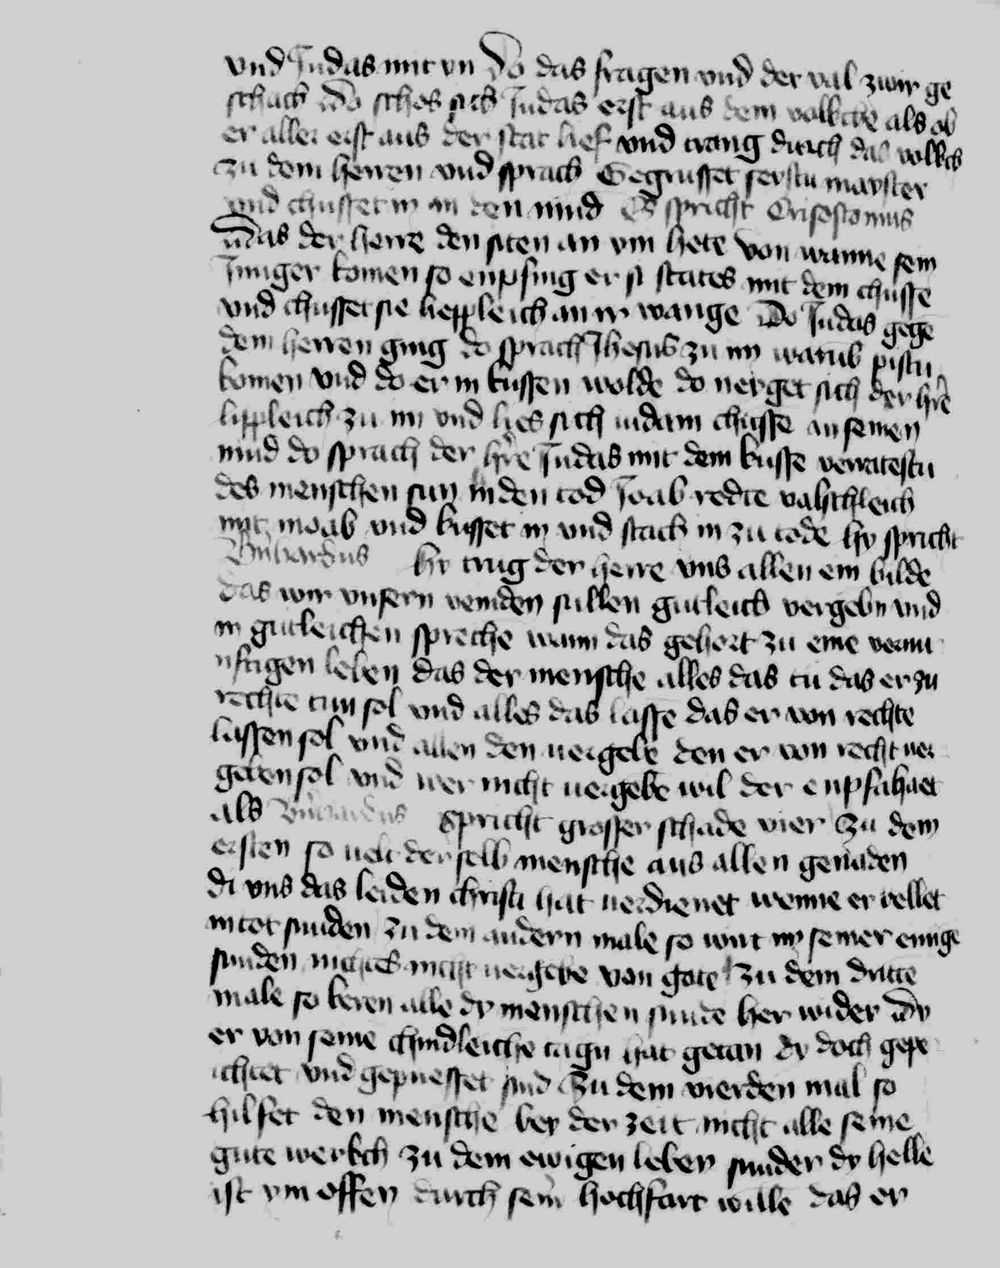 vnd Judas mit yn Do das fragen vnd der val zwir ge
schach Do schos sich Judas erst aus dem volkche als ob
er aller erst aus der stat lief vnd trang durch das volkch
zu dem herren vnd sprach Gegrusset seystu mayster
vnd chusset in an den mund Es spricht Crisostomus
das der herre den siten an ym hete von wanne sein
Junger komen so enpfing er si states mit dem chusse
vnd chusset sie liepleich an ir wange Do Judas gege
dem herren ging do sprach Jhesus zu im warub pistu
komen vnd do er in kussen wolde do neiget sich der hre
lipleich zu im vnd lies sich iudam chusse an seinen
mund do sprach der hre Judas mit dem kusse verratestu
des menschen sun in den tod Joab redte valschleich
mit moab vnd kusset in vnd stach in zu tode hy spricht
hy trug der herre vns allen ein bilde
das wir vnsern veinden sullen gutleich vergebn vnd
in gutleichen spreche wann das gehort zu eine vernu
nftigen leben das der mensche alles das tu das er zu
rechte tun sol vnd alles das lasse das er von rechte
lassen sol vnd allen den uergebe den er von recht uer
geben sol vnd wer nicht uergebe wil der enpfahaet
als spricht grosser schade vier Zu dem
ersten so der selb mensche aus allen genaden
di vns das leiden christi hat uerdienet wenne er vellet
in tot sunden Zu dem andern male so wirt im seiner einige
sunden nichtes nicht uergebe von gote Zu dem dritte
male so keren alle dy menschen sunde her wider dy
er von seine chindleiche tagn hat getan dy doch gepe
ichtet vnd gepuesset sind Zu dem vierden mal so
hilfet den mensche bey der zeit nicht alle seine
gute werkch zu dem ewigen leben sunder dy helle
ist ym offen durch sein hochfart wille das er